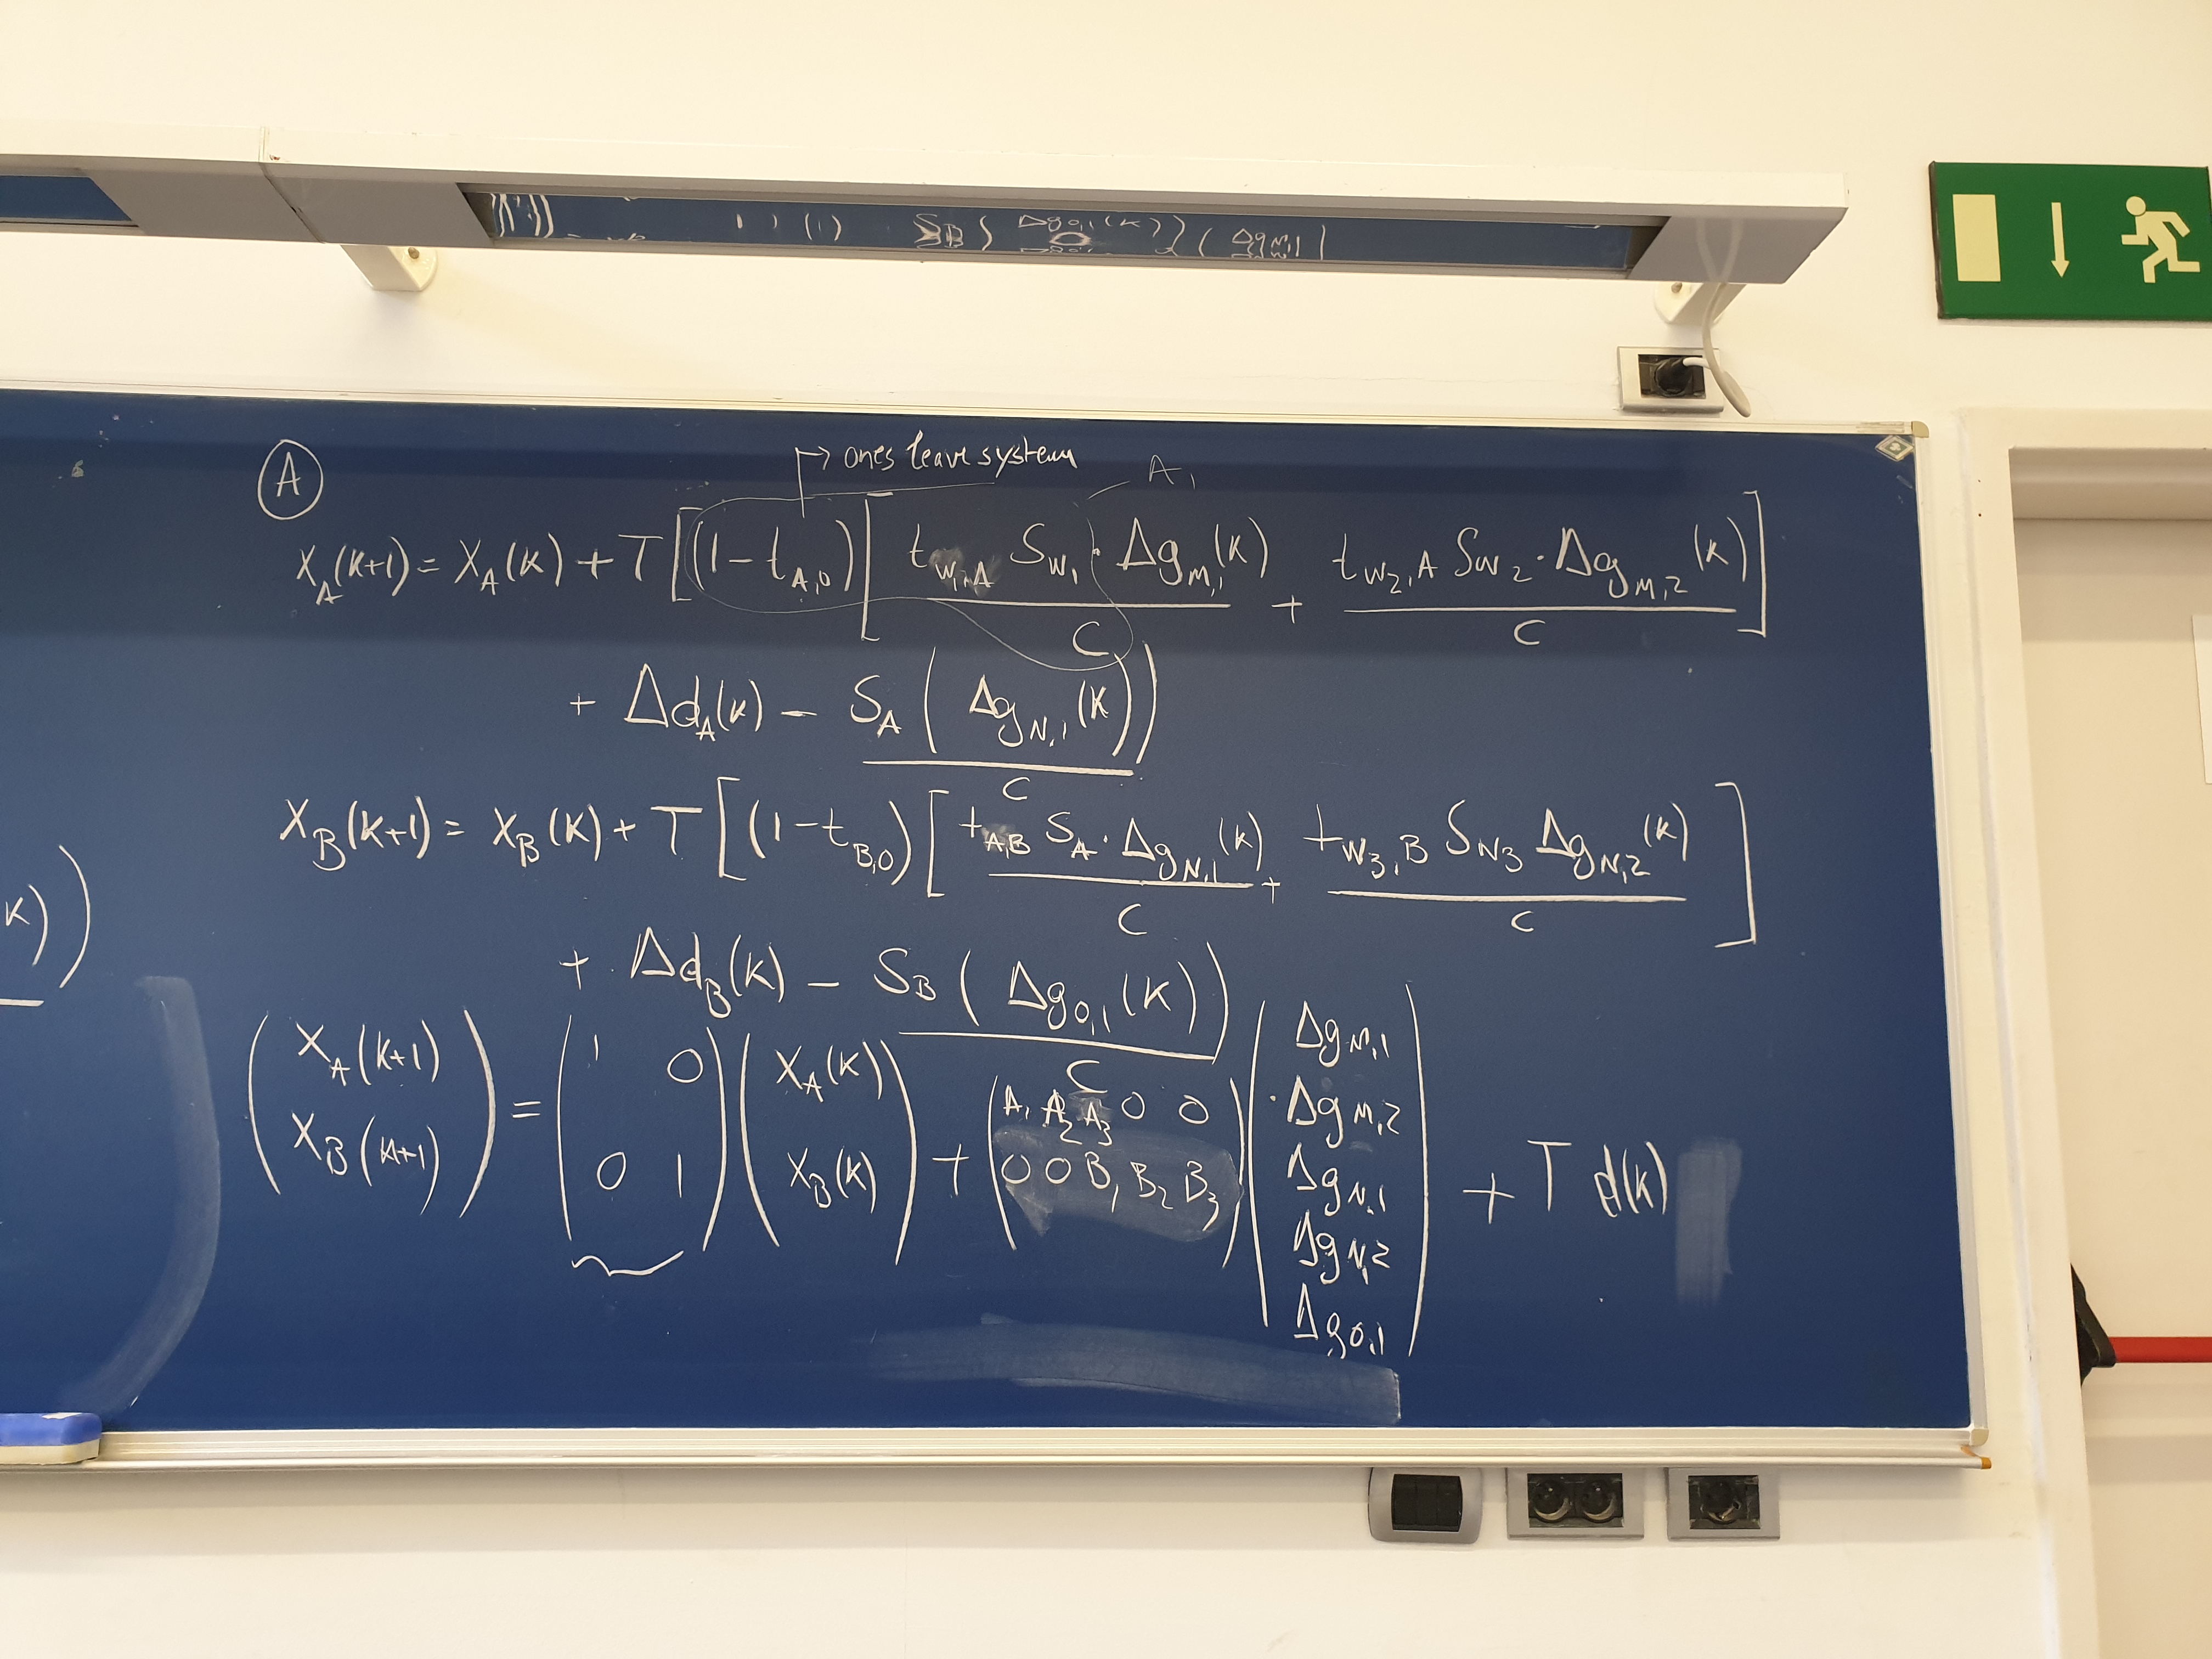 A
→ ones leave system
A₁
X_A(k+1) = X_A(k) + T [(1 - t_{A,0}) [ t_{W₁,A} S_{W₁} · Δg_{M,1}(k) / C + t_{W₂,A} S_{W₂} · Δg_{M,2}(k) / C ]
+ Δd_A(k) - S_A ( Δg_{N,1}(k) ) / C )
X_B(k+1) = X_B(k) + T [ (1 - t_{B,0}) [ t_{A,B} S_A · Δg_{N,1}(k) / C + t_{W₃,B} S_{N3} Δg_{N,2}(k) / C ]
+ Δd_B(k) - S_B ( Δg_{0,1}(k) ) / C
( X_A(k+1) X_B(k+1) ) = ( 1 0 0 1 ) ( X_A(k) X_B(k) ) + ( A₁ A₂ A₃ 0 0 0 0 B₁ B₂ B₃ ) · ( Δg_{M,1} Δg_{M,2} Δg_{N,1} Δg_{N,2} Δg_{0,1} ) + T d(k)
k) )